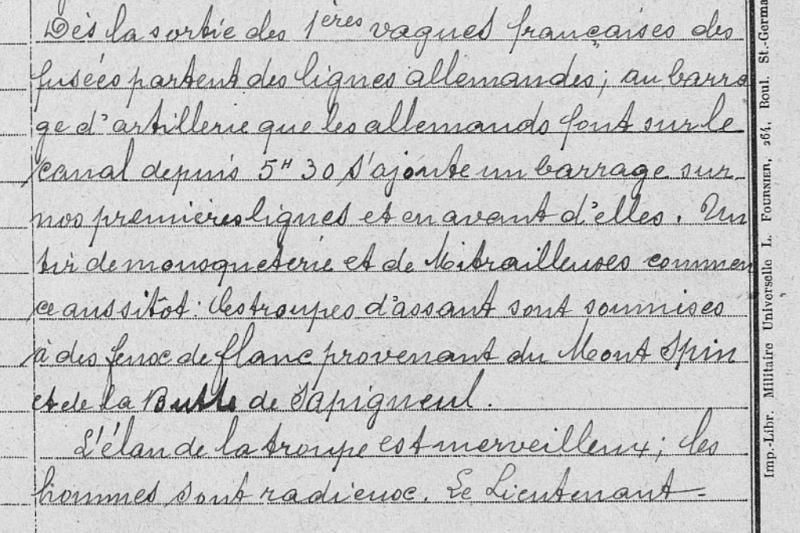 Dès la sortie des 1ères vagues françaises des
fusées partent des lignes allemandes; au barra
ge d'artillerie que les allemands font sur le
canal depuis 5H30 s'ajoute un barrage sur
nos premières lignes et en avant d'elles. Un
tir de mousqueterie et de Mitrailleuses commen
ce aussitôt: les troupes d'assaut sont soumises
à des feux de flanc provenant du Mont Spin
et de la Butte de Sapigneul.
L'élan de la troupe est merveilleux; les
hommes sont radieux. Le Lieutenant-
Imp.-Libr. Militaire Universelle L. FOURNIER, 264, Boul. St.-Germa